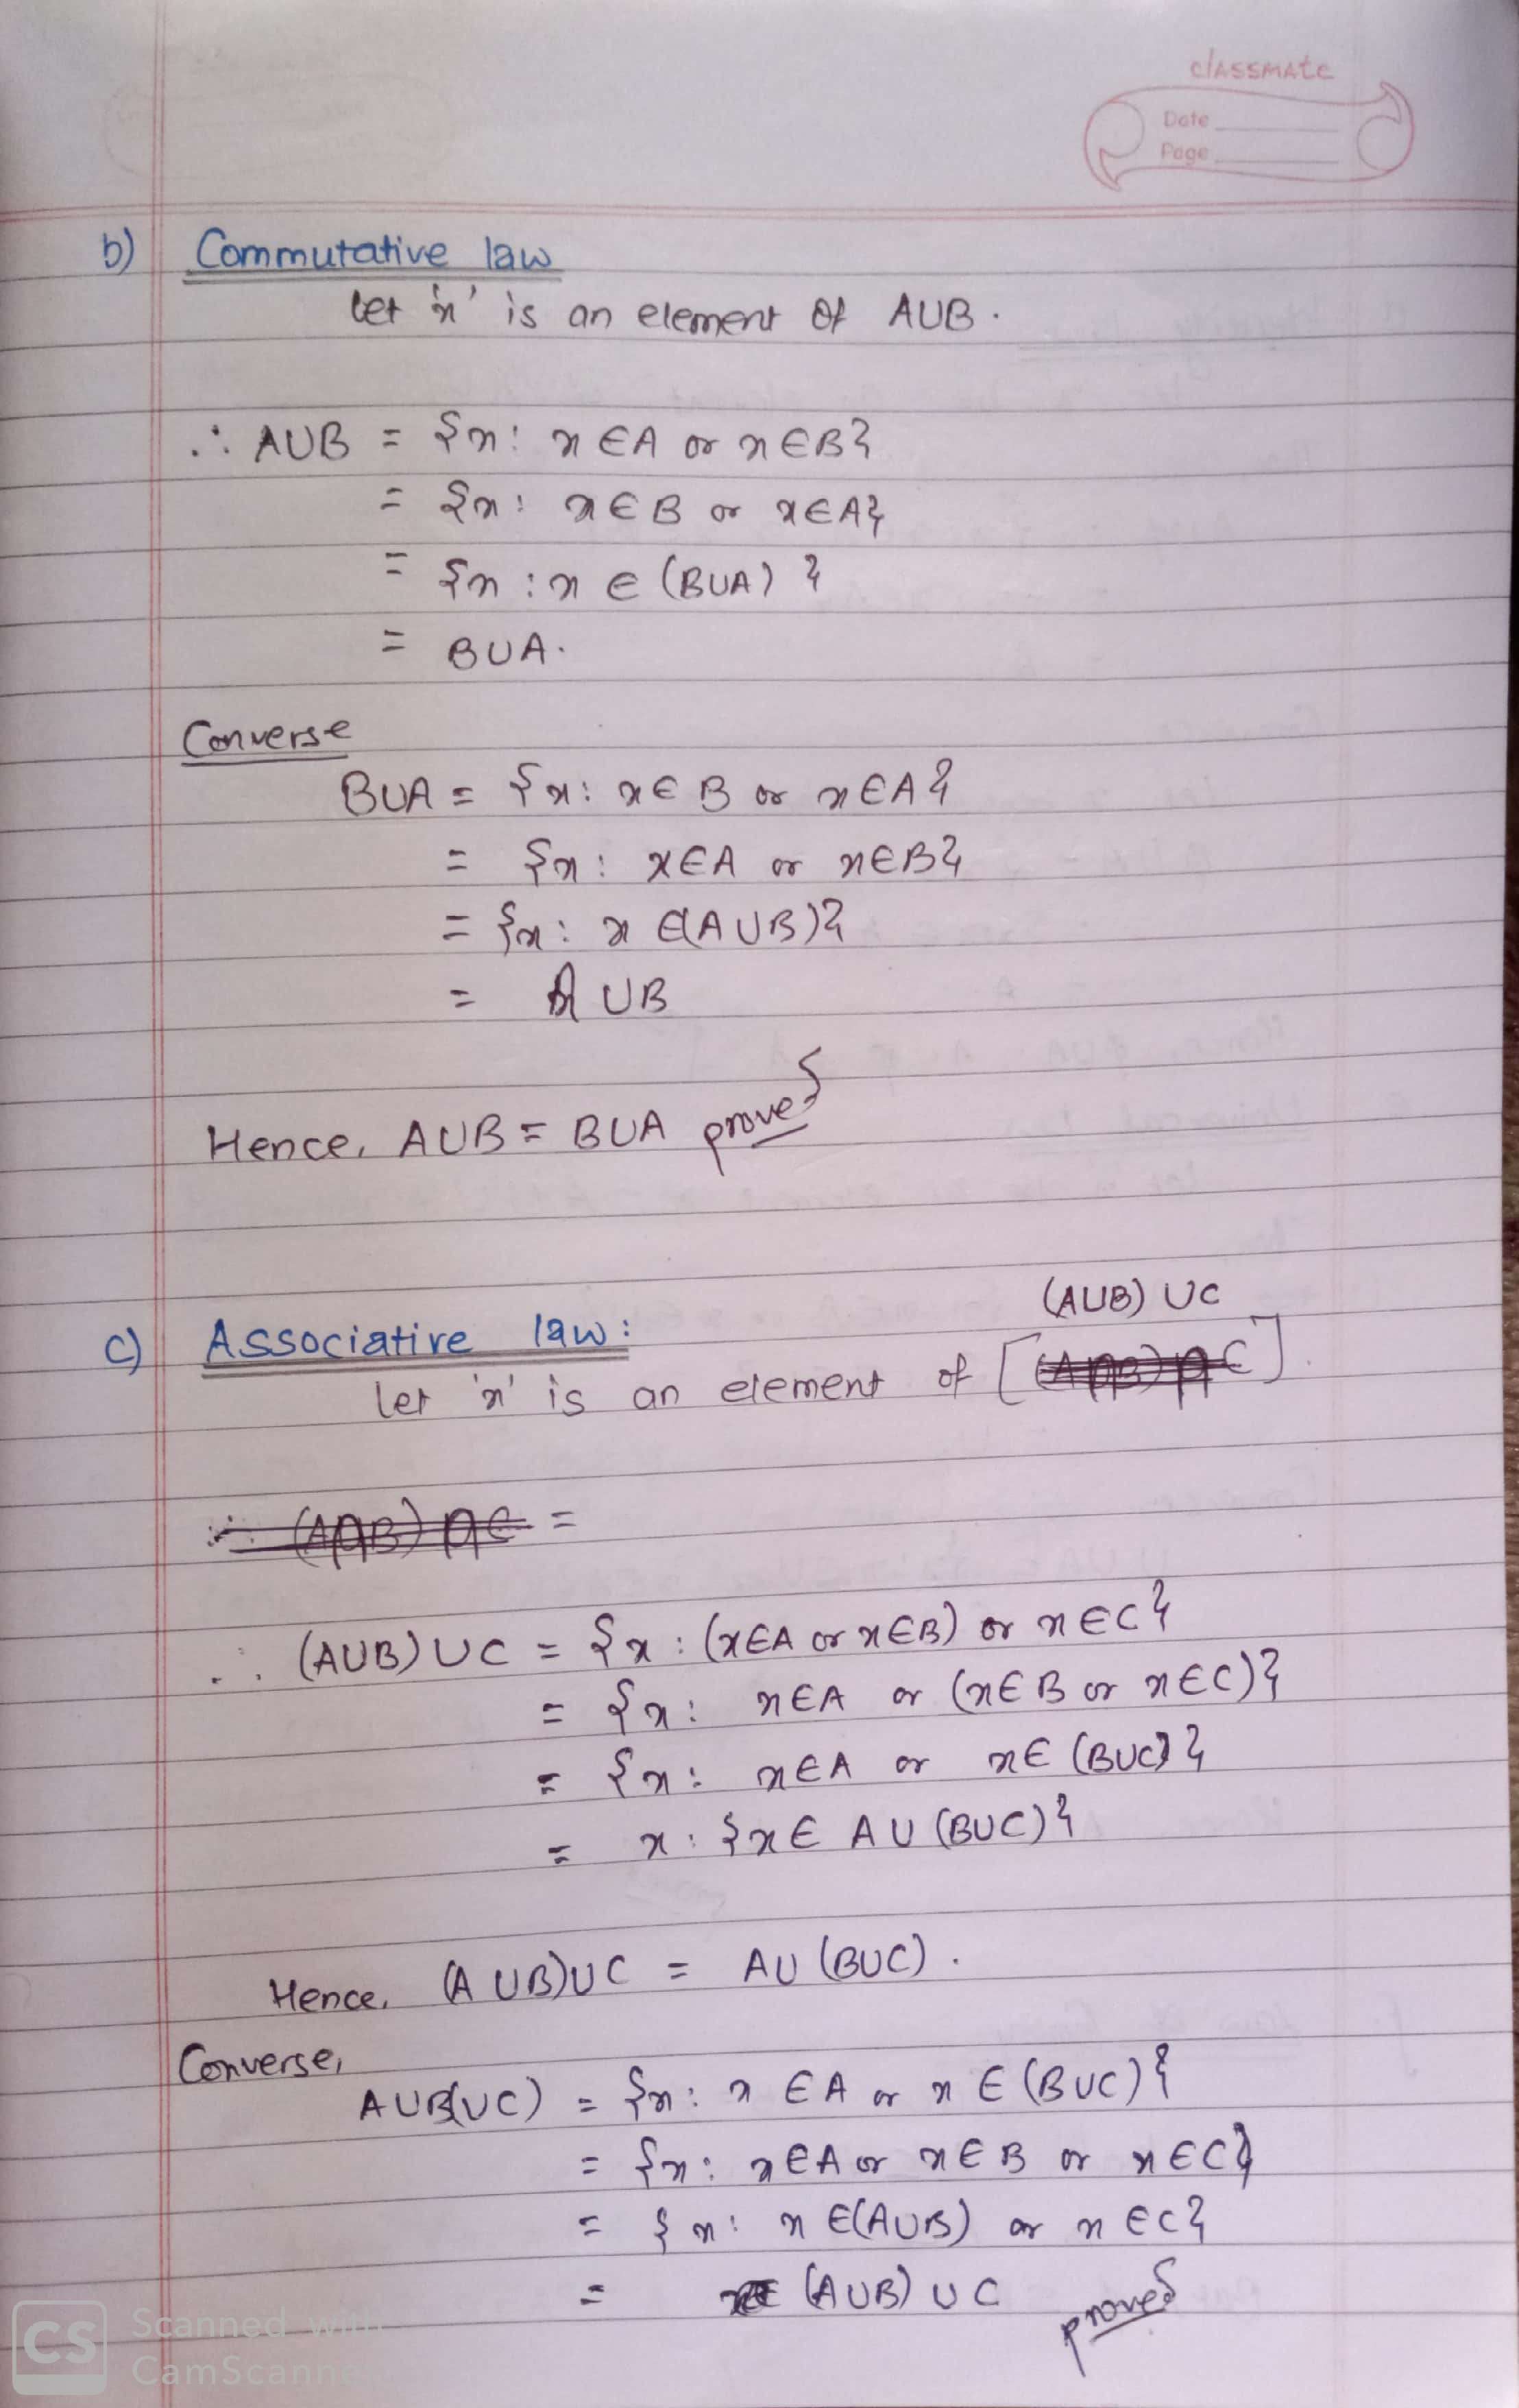 classmate
Date
Page
b) Commutative law
Let 'x' is an element of A∪B.
∴ A∪B = {x: x∈A or x∈B}
= {x: x∈B or x∈A}
= {x: x∈(B∪A)}
= B∪A.
Converse
B∪A = {x: x∈B or x∈A}
= {x: x∈A or x∈B}
= {x: x∈(A∪B)}
= A∪B
Hence, A∪B = B∪A proved
(A∪B)∪C
c) Associative law:
Let 'x' is an element of [(A∩B)∩C].
∴ (A∩B)∩C =
∴ (A∪B)∪C = {x: (x∈A or x∈B) or x∈C}
= {x: x∈A or (x∈B or x∈C)}
= {x: x∈A or x∈(B∪C)}
= x: {x∈A∪(B∪C)}
Hence, (A∪B)∪C = A∪(B∪C).
Converse,
A∪B(∪C) = {x: x∈A or x∈(B∪C)}
= {x: x∈A or x∈B or x∈C}
= {x: x∈(A∪B) or x∈C}
= (A∪B)∪C proved
CS Scanned with
CamScanne